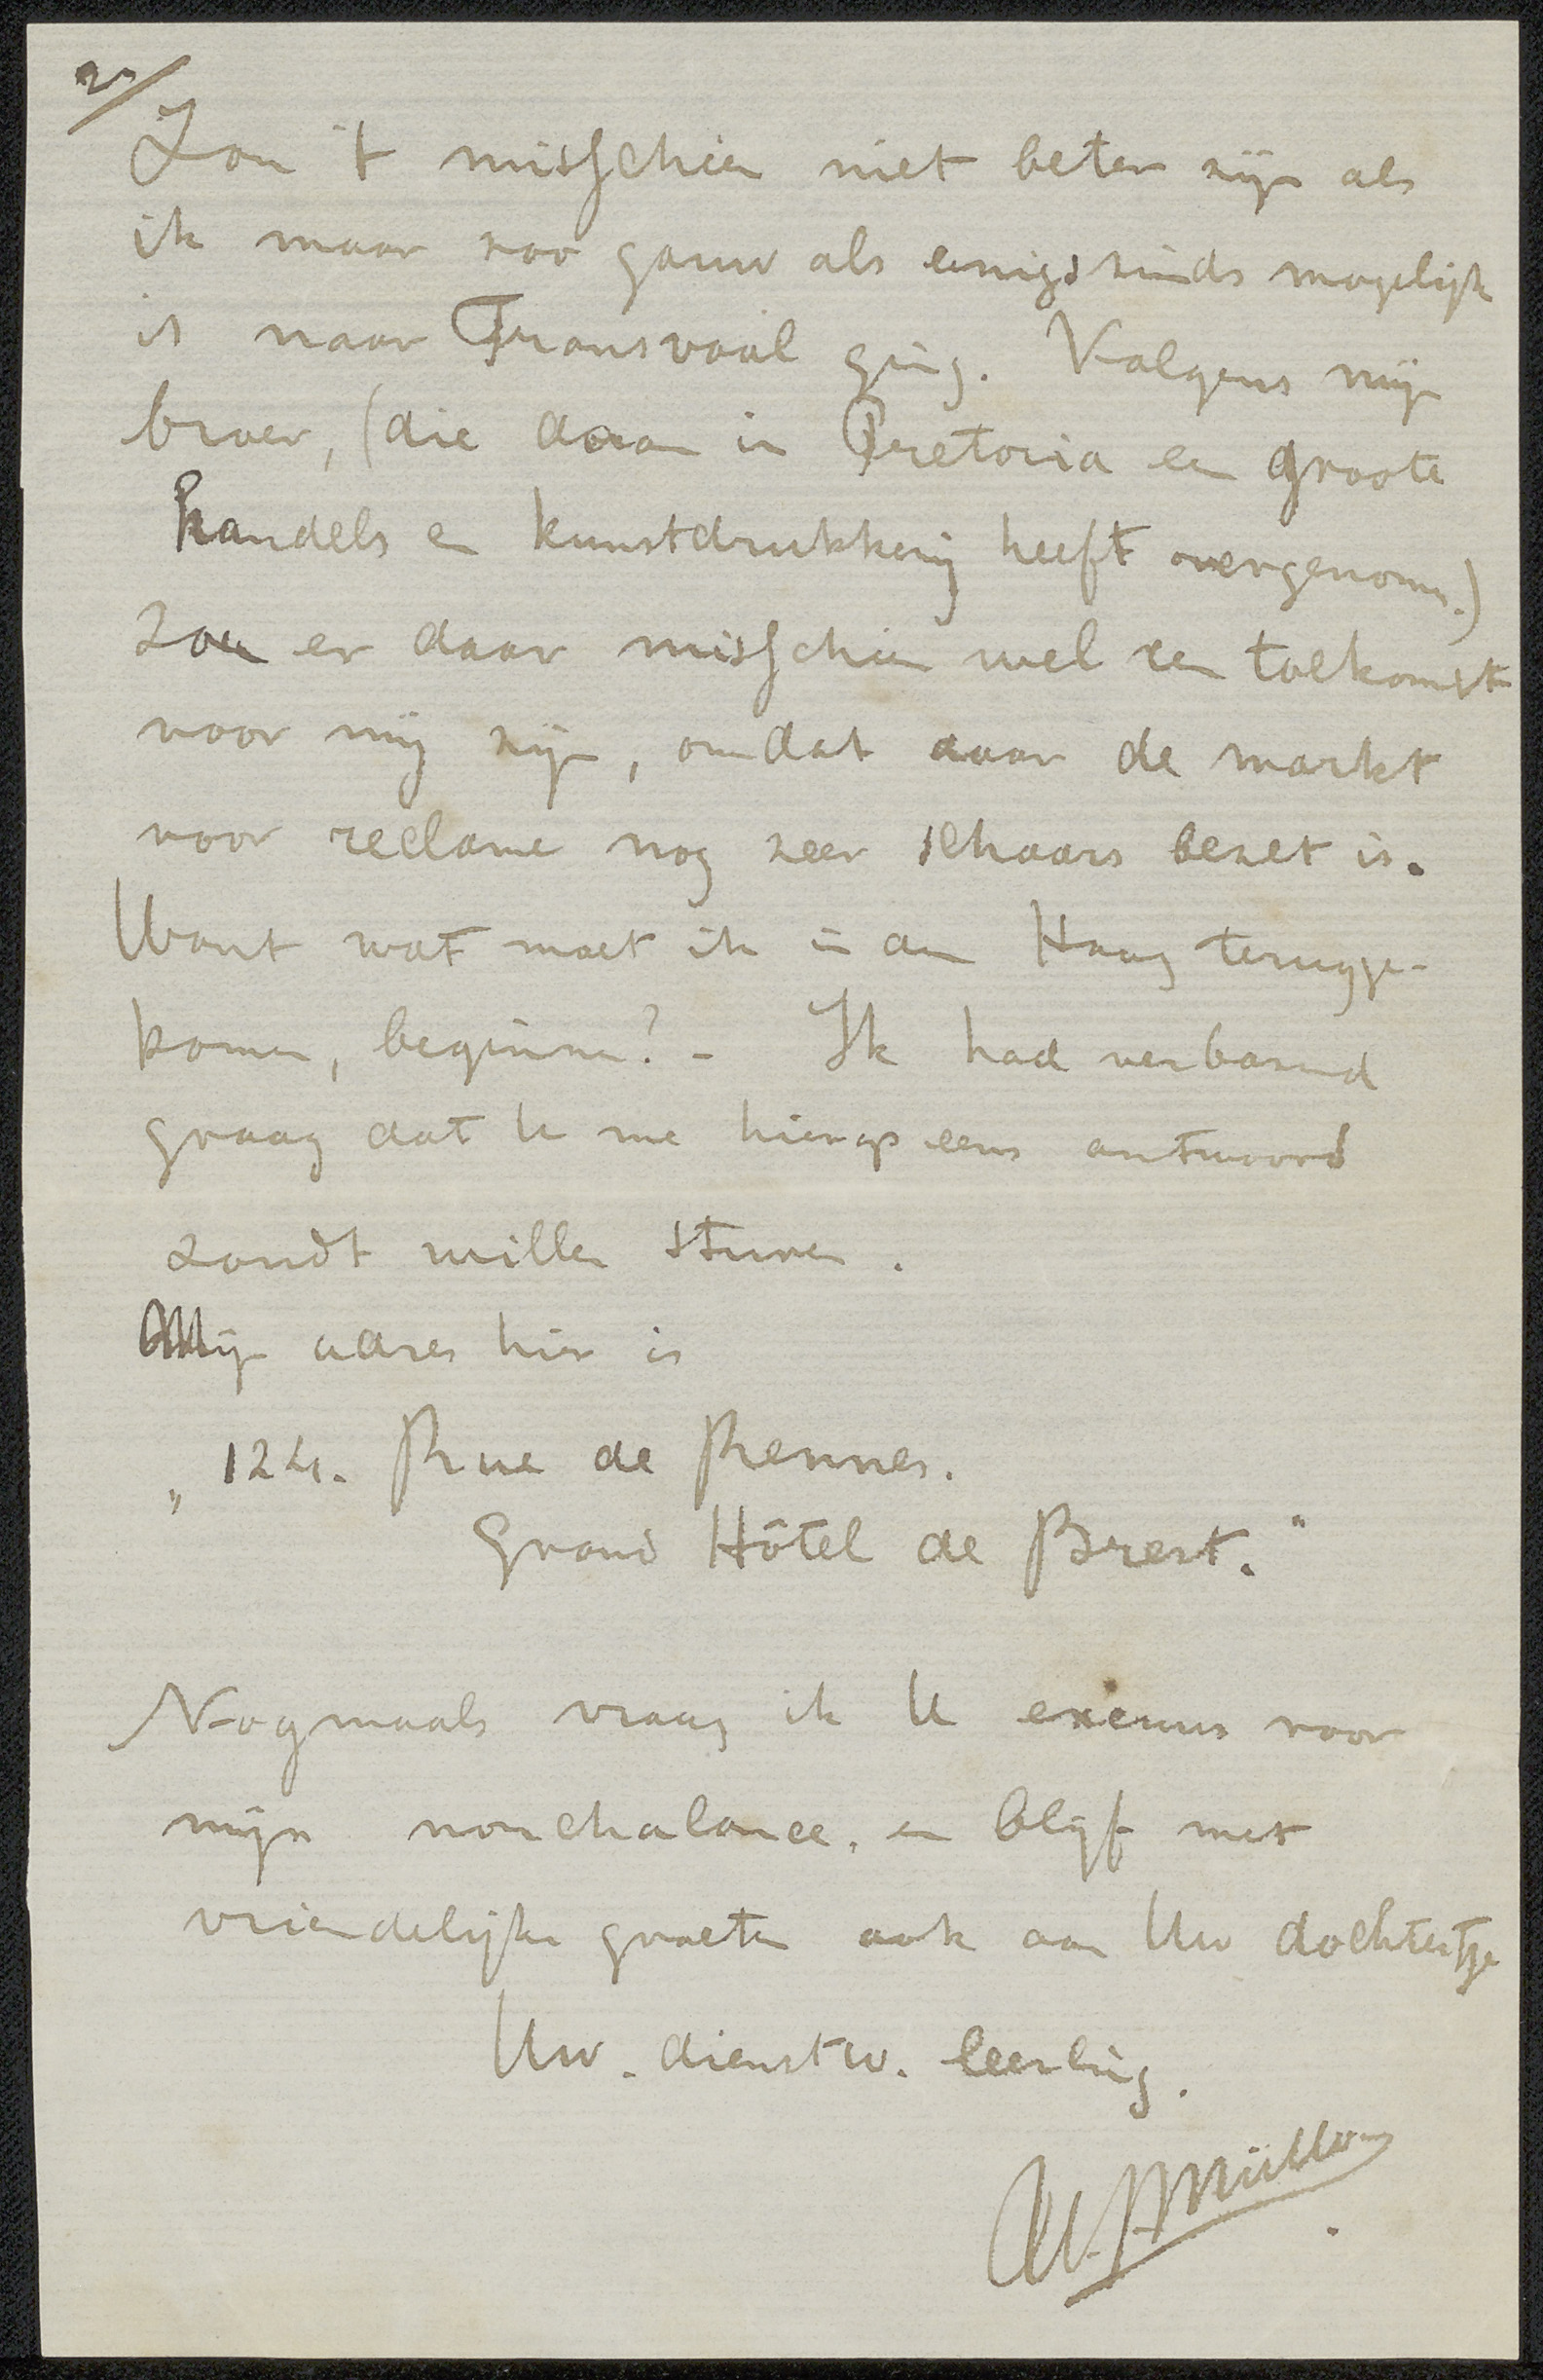 2°/
Zou 't misschien niet beter zijn als
ik maar zoo gauw als eenigszinds mogelijk
is naar Transvaal ging. Volgens mijn
broer, (die daar in Pretoria een groote
handels en kunstdrukkerij heeft overgenomen.)
zou er daar misschien wel een toekomst
voor mij zijn, omdat daar de markt
voor reclame nog zeer schaars bezet is.
Want wat moet ik in den Haag terugge-
komen, beginnen? - Ik had verbazend
graag dat U me hierop eens antwoord
zoudt willen sturen.
Mijn adres hier is
„ 124. Rue de Rennes.
Grand Hôtel de Brest."
Nogmaals vraag ik U excuus voor
mijn nonchalance, en blijf met
vriendelijke groeten ook aan Uw dochtertje
Uw. dienstw. leerling.
Müller